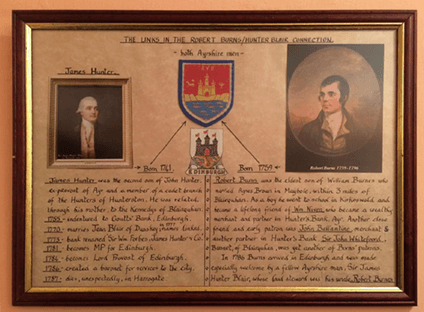 THE LINKS IN THE ROBERT BURNS/HUNTER BLAIR CONNECTION.
- both Ayrshire men -
James Hunter.
Robert Burns 1759-1796
EDINBURGH
Born 1741.
Born 1759
James Hunter was the second son of John Hunter,
ex provost of Ayr and a member of a cadet branch
of the Hunters of Hunterston. He was related,
through his mother, to the Kennedys of Blairquhan.
indentured to Coutts' Bank, Edinburgh.
1770- marries Jean Blair of Dunskey,
1773- bank renamed Sir Wm Forbes, James Hunter & Co
1781- becomes MP for Edinburgh.
1784- becomes Lord Provost of Edinburgh.
1786- created a baronet for services to the city.
1787- dies, unexpectedly, in Harrogate
Robert Burns was the eldest son of William Burnes who
married Agnes Brown in Maybole, within 3 miles of
Blairquhan. As a boy he went to school in Kirkoswald and
became a lifelong friend of Wm Niven, who became a wealthy
merchant and partner in Hunter's Bank, Ayr. Another close
friend and early patron was John Ballantine, merchant &
another partner in Hunter's Bank. Sir John Whitefoord,
Baronet, of Blairquhan, was yet another of Burns' patrons.
In 1786 Burns arrived in Edinburgh and was made
especially welcome by a fellow Ayrshire man, Sir James
Hunter Blair, whose land steward was his uncle, Robert Burnes